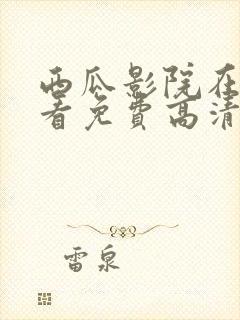 西瓜影院在
看免费高清
雷泉